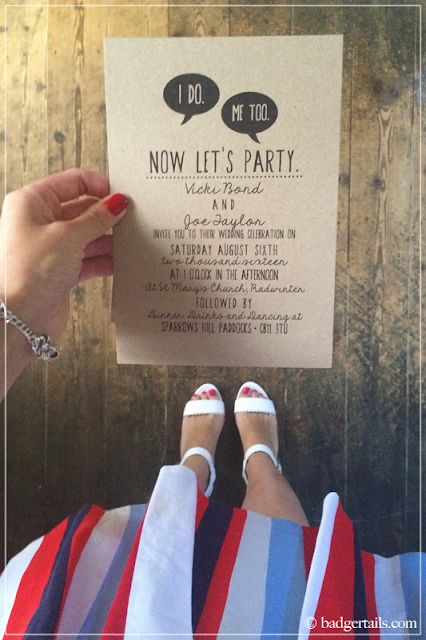 I DO.
ME TOO.
NOW LET'S PARTY.
Vicki Bond
AND
Joe Taylor
INVITE YOU TO THEIR WEDDING CELEBRATION ON
SATURDAY AUGUST SIXTH
two thousand sixteen
AT 1 O'CLOCK IN THE AFTERNOON
At St Mary's Church, Radwinter
FOLLOWED BY
Dinner, Drinks and Dancing at
SPARROWS HILL PADDOCKS • CB11 3TU
© badgertails.com